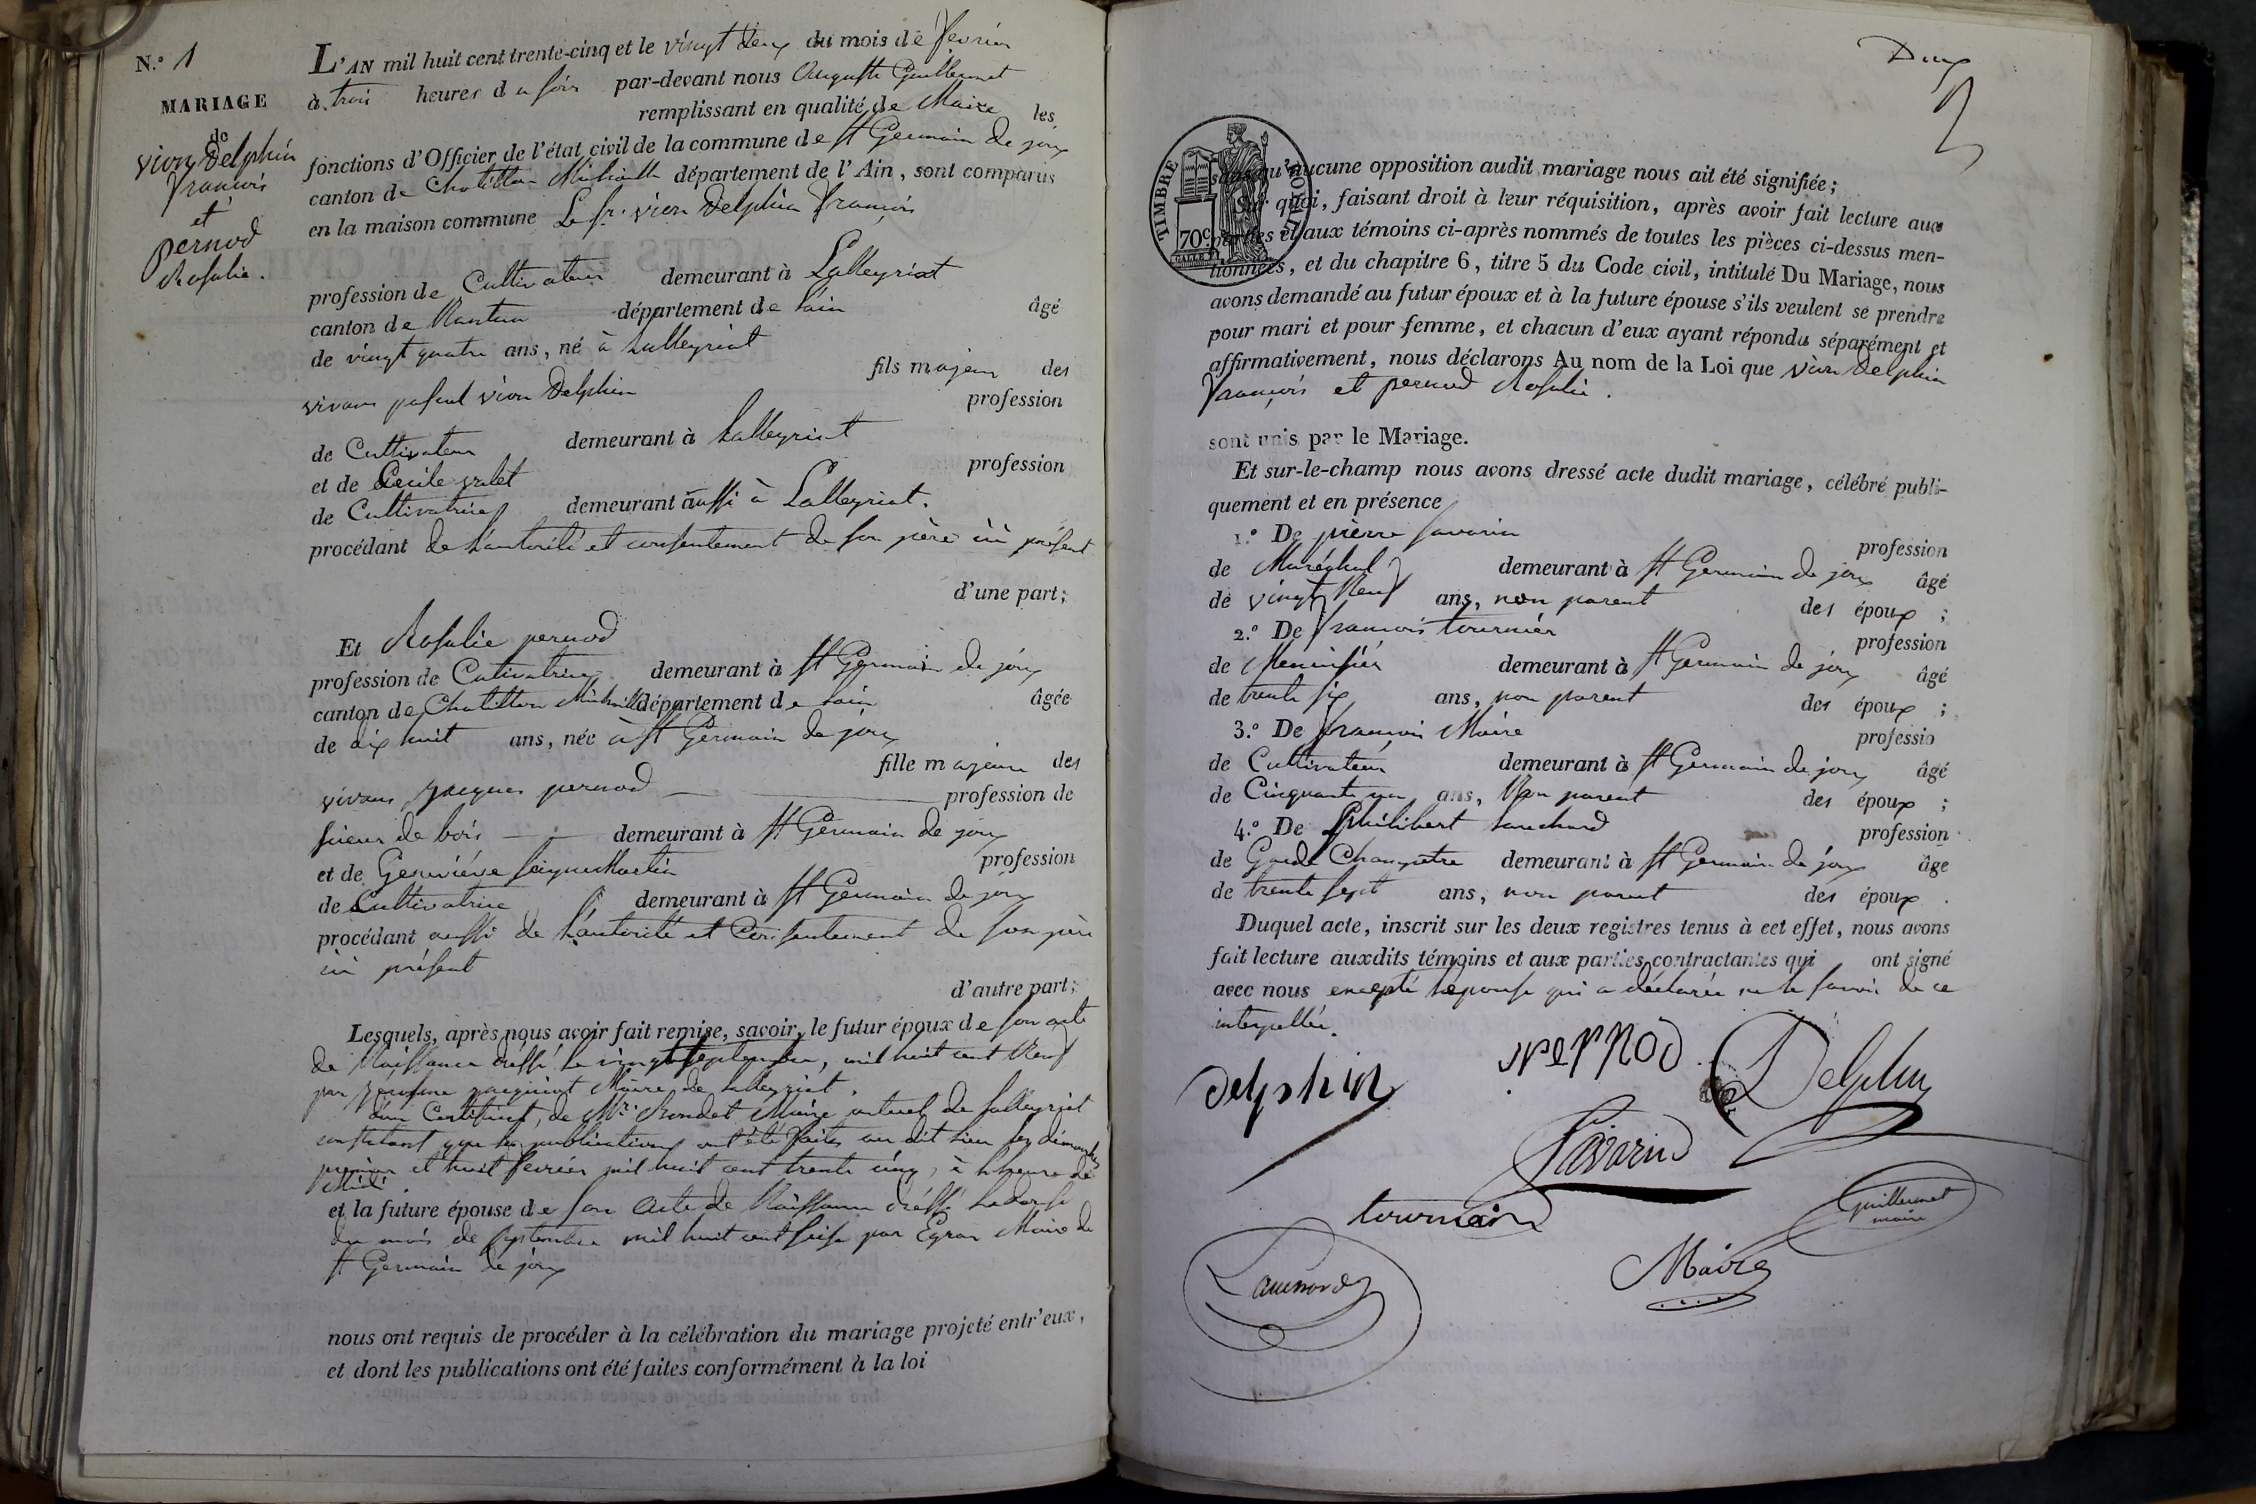 N.º 1
MARIAGE
de
vion Delphin
françois
et
pernod
Rosalie.
L'AN mil huit cent trente-cinq et le vingt deux du mois de fevrier
à trois heures du soir par-devant nous Auguste Guillermet
remplissant en qualité de Maire les
fonctions d'Officier de l'état civil de la commune de St Germain de joux
canton de Chatillon Michaille département de l'Ain, sont comparus
en la maison commune Le sr. vion Delphin françois
profession de Cultivateur demeurant à Lalleyriat
canton de Nantua département de Lain âgé
de vingt quatre ans, né à Lalleyriat
fils majeur des
vivans pascal vion Delphin profession
de Cultivateur demeurant à Lalleyriat
et de Cecile valet profession
de Cultivatrice demeurant aussi à Lalleyriat.
procédant de L'autorité et consentement de son père ici présent
d'une part;
Et Rosalie pernod
profession de Cutivatrice demeurant à St Germain de joux
canton de Chatillon Michaille département de Lain âgée
de dix huit ans, née à St Germain de joux
fille majeure des
vivans jacques pernod profession de
sieur de bois demeurant à St Germain de joux
et de Geneviéve seigne Martin profession
de Cultivatrice demeurant à St Germain de joux
procédant aussi de L'autorité et Consentement de son père
ici présent
d'autre part;
Lesquels, après nous avoir fait remise, savoir, le futur époux de son acte
de Naissance dréssé le vingt septembre, mil huit cent Neuf
par jacquinot Maire de Lalleyriat.
d'un Certificat, de Mr. Rondet Maire actuel de Lalleyriat
constatant que les publications ont été faites au dit lieu les dimanches
premier et huit fevrier mil huit cent trente cinq, à l'heure de
Midi.
et la future épouse de son acte de Naissance dréssé
du mois de septembre mil huit cent seise par Egraz Maire de
St Germain de joux
nous ont requis de procéder à la célébration du mariage projeté entr'eux,
et dont les publications ont été faites conformément à la loi
Deux
2
TIMBRE ROYAL
70c.
sans qu'aucune opposition audit mariage nous ait été signifiée;
Sur quoi, faisant droit à leur réquisition, après avoir fait lecture aux
parties et aux témoins ci-après nommés de toutes les pièces ci-dessus men-
tionnées, et du chapitre 6, titre 5 du Code civil, intitulé Du Mariage, nous
avons demandé au futur époux et à la future épouse s'ils veulent se prendre
pour mari et pour femme, et chacun d'eux ayant répondu séparément et
affirmativement, nous déclarons Au nom de la Loi que vion Delphin
françois et pernod Rosalie.
sont unis par le Mariage.
Et sur-le-champ nous avons dressé acte dudit mariage, célébré publi-
quement et en présence
1.º De pièrre savarin profession
de Maréchal demeurant à St Germain de joux âgé
de vingt Neuf ans, non parent des époux ;
2.º De francois tournier profession
de Menuisier demeurant à St Germain de joux âgé
de trente six ans, non parent des époux ;
3.º De francois Maire professio
de Cultivateur demeurant à St Germain de joux âgé
de Cinquante un ans, Non parent des époux ;
4.º De Philibert profession
de Garde Champetre demeurant à St Germain de joux âge
de trente sept ans, non parent des époux .
Duquel acte, inscrit sur les deux registres tenus à cet effet, nous avons
fait lecture auxdits témoins et aux parties contractantes qui ont signé
avec nous excepté Lepouse qui a déclarée ne le savoir de ce
interpellée.
Delphin perNod Delphin
Savarin
tournier Guillermet
maire
Maire